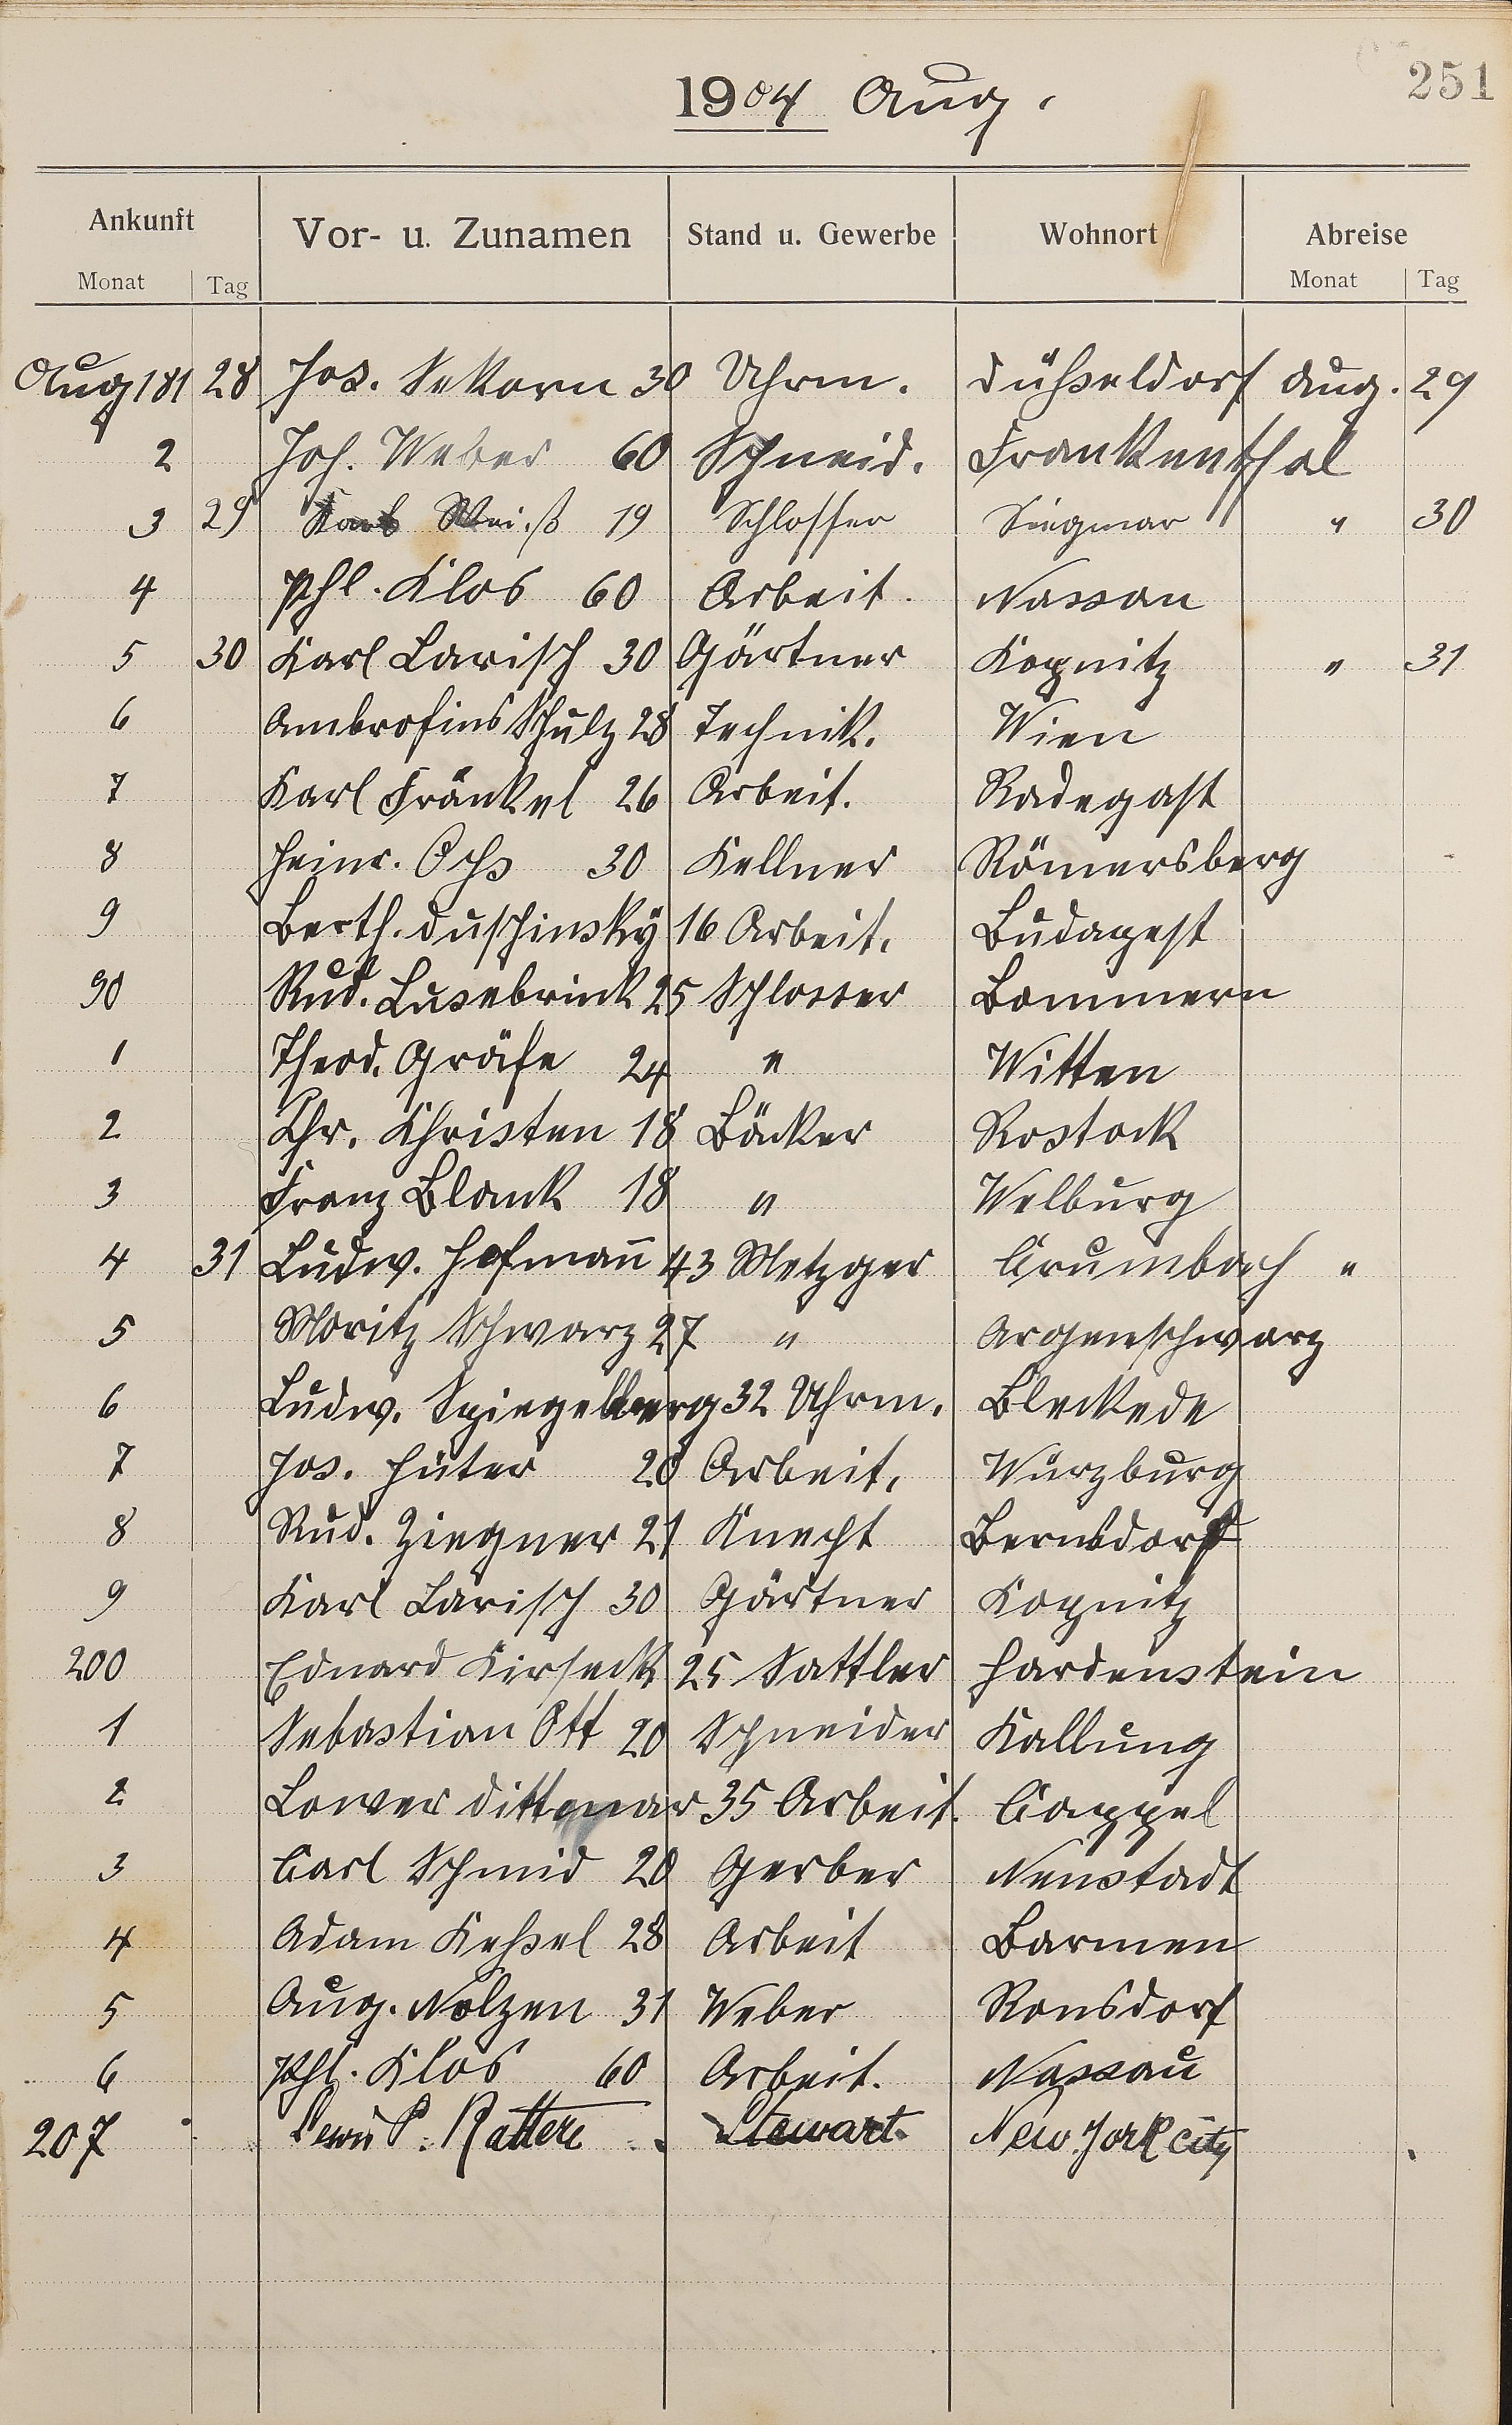 251
1904 Aug.
Ankunft Vor- u. Zunamen Stand u. Gewerbe Wohnort Abreise
Monat Tag Monat Tag
Aug 181 28 Jos. Sekorn 30 Uhrm. Düßseldorf Aug. 29
2 Joh. Weber 60 Schneid. Frankenthal
3 29 Karl Weiß 19 Schlosser Siegmar " 30
4 Phl. Klos 60 Arbeit. Nassau
5 30 Karl Larisch 30 Gärtner Kopnitz " 31
6 Ambrosius Schulz 28 Technik. Wien
7 Karl Fränkel 26 Arbeit. Radegast
8 Heinr. Ochs 30 Kellner Römersberg
9 Berth. Duschinsky 16 Arbeit. Budapest
90 Rud. Lusebrink 25 Schlosser Bommern
1 Theod. Gräfe 24 " Witten
2 Chr. Christen 18 Bäcker Rostock
3 Franz Blank 18 " Welburg
4 31 Ludw. Hofmann̄ 43 Metzger Crumbach "
5 Moritz Schwarz 27 " Argenschwarz
6 Ludw. Spiegelberg 32 Uhrm. Bleckede
7 Jos. Hüter 20 Arbeit. Wurzburg
8 Rud. Ziegner 21 Knecht Bernsdorf
9 Karl Larisch 30 Gärtner Kopnitz
200 Eduard Kirseck 25 Sattler Hardenstein
1 Sebastian Ott 20 Schneider Kallung
2 Dittmar 35 Arbeit. Cappel
3 Carl Schmid 20 Gerber Neustadt
4 Adam Keßel 28 Arbeit Barmen
5 Aug. Nolzen 31 Weber Ronsdorf
6 Phl. Klos 60 Arbeit. Nassau
207 P. Stewart. New York city